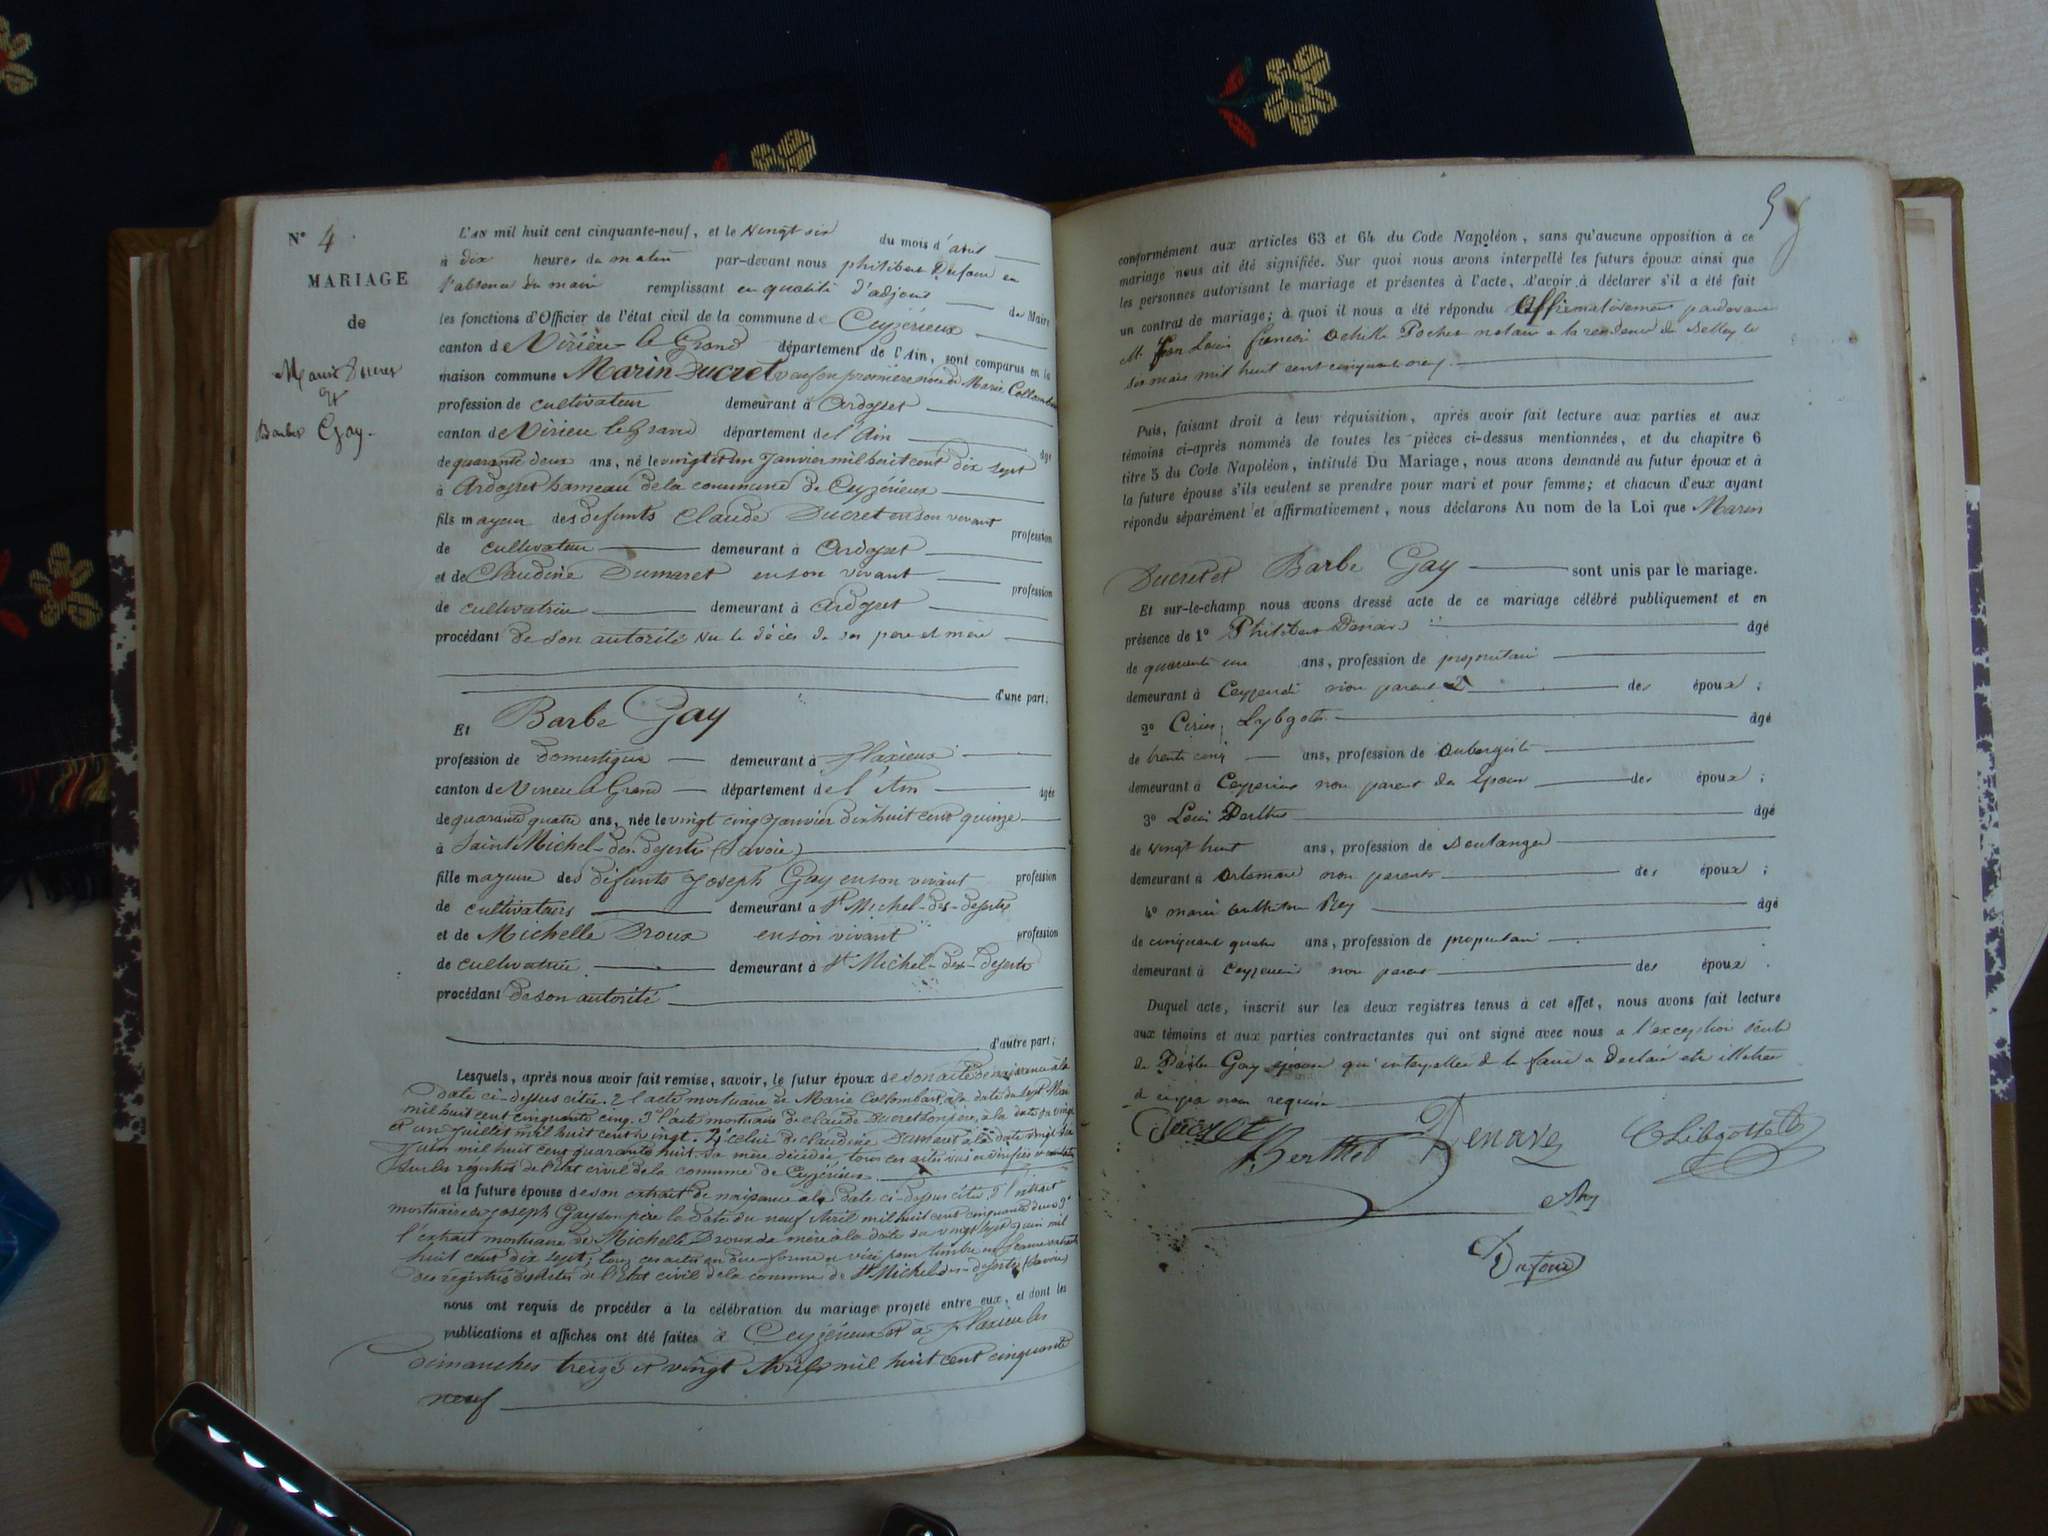 N° 4
MARIAGE
de
Marin Ducret
et
Barbe Gay.
L'AN mil huit cent cinquante-neuf, et le vingt six du mois d'avril
à dix heures du matin par-devant nous philibert Dufour en
l'absence du maire remplissant en qualité d'adjoint de Maire
les fonctions d'Officier de l'état civil de la commune de Ceyzérieux
canton de Virieu-le Grand département de l'Ain, sont comparus en la
maison commune Marin Ducret veuf en première noce de Marie Collombat
profession de cultivateur demeurant à Ardosset
canton de Virieu le Grand département de l'Ain âgé
de quarante deux ans, né le vingt et un Janvier mil huit cent dix sept
à Ardosset hameau de la commune de Ceyzérieux
fils majeur des défunts Claude Ducret en son vivant profession
de cultivateur demeurant à Ardosset
et de Claudine Dumaret en son vivant profession
de cultivatrice demeurant à Ardosset
procédant de son autorité vu le décès de ses père et mère
d'une part;
Et Barbe Gay
profession de domestique demeurant à flaxieux
canton de Virieu le Grand département de l'Ain âgée
de quarante quatre ans, née le vingt cinq Janvier dix huit cent quinze
à Saint Michel-des-deserts (Savoie)
fille majeure des défunts Joseph Gay en son vivant profession
de cultivateurs demeurant à St Michel-des-deserts
et de Michelle Droux en son vivant profession
de cultivatrice demeurant à St Michel-des-deserts
procédant de son autorité
d'autre part;
Lesquels, après nous avoir fait remise, savoir, le futur époux de son acte de naissance à la
date ci-dessus citée. 2° l'acte mortuaire de Marie Collombat, à la date du sept Mai
mil huit cent cinquante cinq. 3° l'acte mortuaire de claude Ducret son père, à la date du vingt
et un Juillet mil huit cent vingt. 4° celui de claudine Dumaret à la date vingt six
Juin mil huit cent quarante huit. Sa mère décédée, tous ces actes vus et vérifiés
sur les registres de l'Etat civil de la commune de Ceyzérieux.
et la future épouse de son extrait de naissance à la date ci-dessus citée, 2° l'extrait
mortuaire de Joseph Gay son père la date du neuf Avril mil huit cent cinquante deux 3°
l'extrait mortuaire de Michelle Droux sa mère à la date du vingt sept Juin mil
huit cent dix sept; tous ces actes en due forme et visé pour timbre
des registres des Actes de l'Etat civil de la commune de St Michel-des-deserts (Savoie)
nous ont requis de procéder à la célébration du mariage projeté entre eux, et dont les
publications et affiches ont été faites à Ceyzérieux et à flaxieu les
dimanches treize et vingt Avril mil huit cent cinquante
neuf
conformément aux articles 63 et 64 du Code Napoléon, sans qu'aucune opposition à ce
mariage nous ait été signifiée. Sur quoi nous avons interpellé les futurs époux ainsi que
les personnes autorisant le mariage et présentes à l'acte, d'avoir à déclarer s'il a été fait
un contrat de mariage; à quoi il nous a été répondu Affirmativement pardevant
Mr Jean Louis francois Achille Pochet notaire a la residence de Belley le
six mars mil huit cent cinquante neuf.
Puis, faisant droit à leur réquisition, après avoir fait lecture aux parties et aux
témoins ci-après nommés de toutes les pièces ci-dessus mentionnées, et du chapitre 6
titre 5 du Code Napoléon, intitulé Du Mariage, nous avons demandé au futur époux et à
la future épouse s'ils veulent se prendre pour mari et pour femme; et chacun d'eux ayant
répondu séparément et affirmativement, nous déclarons Au nom de la Loi que Marin
Ducret et Barbe Gay sont unis par le mariage.
Et sur-le-champ nous avons dressé acte de ce mariage célébré publiquement et en
présence de 1° Philibert Denave âgé
de quarante un ans, profession de propriétaire
demeurant à Ceyzerieu non parent des époux;
2° Libgott âgé
de trente cinq ans, profession de aubergiste
demeurant à Ceyzerieux non parent des époux des époux;
3° Louis Berthet âgé
de vingt huit ans, profession de Boulanger
demeurant à Artemare non parents des époux;
4° marie Rey âgé
de cinquante quatre ans, profession de propriétaire
demeurant à Ceyzerieu non parent des époux.
Duquel acte, inscrit sur les deux registres tenus à cet effet, nous avons fait lecture
aux témoins et aux parties contractantes qui ont signé avec nous a l'exception seule
de Barbe Gay épouse qui interpellée de le faire a déclaré etre illettrée
de ce requise
Ducret
Berthet
Denave
Libgott
Rey
Dufour